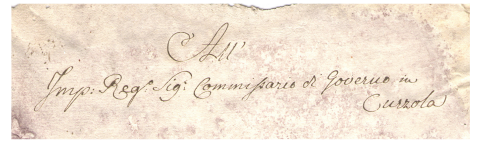 All'
Imp: Reg: Sig: Commissario di Governo in
Curzola